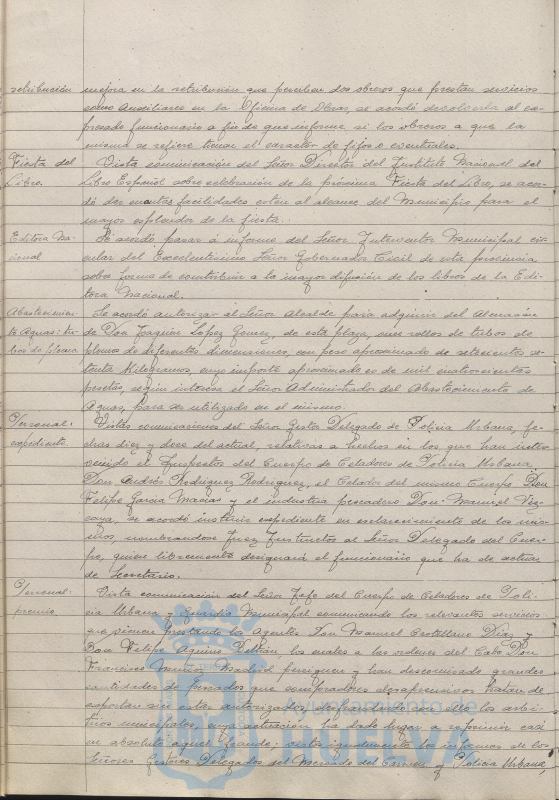 retribución mejora en la retribución que perciben dos obreros que prestan servicios
como Auxiliares en la Oficina de Obras, se acordó devolverla al ex-
presado funcionario a fin de que informe si los obreros a que la
misma se refiere tienen el carácter de fijos o eventuales.
Fiesta del Vista comunicación del Señor Director del Instituto Nacional del
Libro. Libro Español sobre celebración de la próxima Fiesta del Libro, se acor-
dó dar cuantas facilidades estén al alcance del Municipio para el
mayor esplendor de la fiesta.
Editora Na- Se acordó pasar a informe del Señor Interventor Municipal cir-
cional cular del Excelentísimo Señor Gobernador Civil de esta provincia
sobre forma de contribuir a la mayor difusión de los libros de la Edi-
tora Nacional.
Abastecimien- Se acordó autorizar al Señor Alcalde para adquirir del Almacén
to Aguas: tu- de Don Joaquín López Gómez, de esta plaza, unos rollos de tubos de
bos de plomo plomo de diferentes dimensiones, con peso aproximado de setecientos se-
tenta Kilogramos, cuyo importe aproximado es de mil cuatrocientas
pesetas, según interesa el Señor Administrador del Abastecimiento de
Aguas, para ser utilizado en el mismo.
Personal: Vistas comunicaciones del Señor Gestor Delegado de Policía Urbana, fe-
expediente. chas diez y doce del actual, relativas a hechos en los que han inter-
venido el Inspector del Cuerpo de Celadores de Policía Urbana,
Don Andrés Rodríguez Rodríguez, el Celador del mismo Cuerpo Don
Felipe García Macías y el industrial pescadero Don Manuel Viz-
caya, se acordó instruir expediente en esclarecimiento de los mis-
mos, nombrándose Juez Instructor al Señor Delegado del Cuer-
po, quien libremente designará el funcionario que ha de actuar
de Secretario.
Personal: Vista comunicación del Señor Jefe del Cuerpo de Celadores de Poli-
premio. cía Urbana y Guardia Municipal comunicando los relevantes servicios
que vienen prestando los Agentes Don Manuel Castellano Díaz y
Don Felipe Aquino Beltrán, los cuales a las órdenes del Cabo Don
Francisco Madrid persiguen y han descomisado grandes
cantidades de pescados que compradores desaprensivos tratan de
exportar sin estar autorizados, defraudando con ello los arbi-
trios municipales, cuya actuación ha dado lugar a reprimir casi
en absoluto aquel fraude; vistos igualmente los informes de los
Señores Gestores Delegados del Mercado del Carmen y Policía Urbana,
Ayuntamiento de
HUELVA